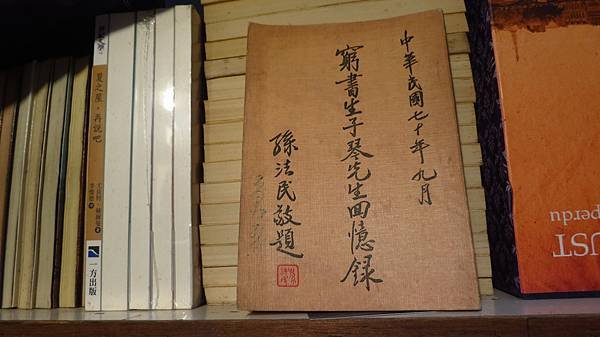 中華民國七十年九月
窮書生子琴先生回憶錄
孫法民敬題
夏之屋·再說吧
一方出版
UST
perdu